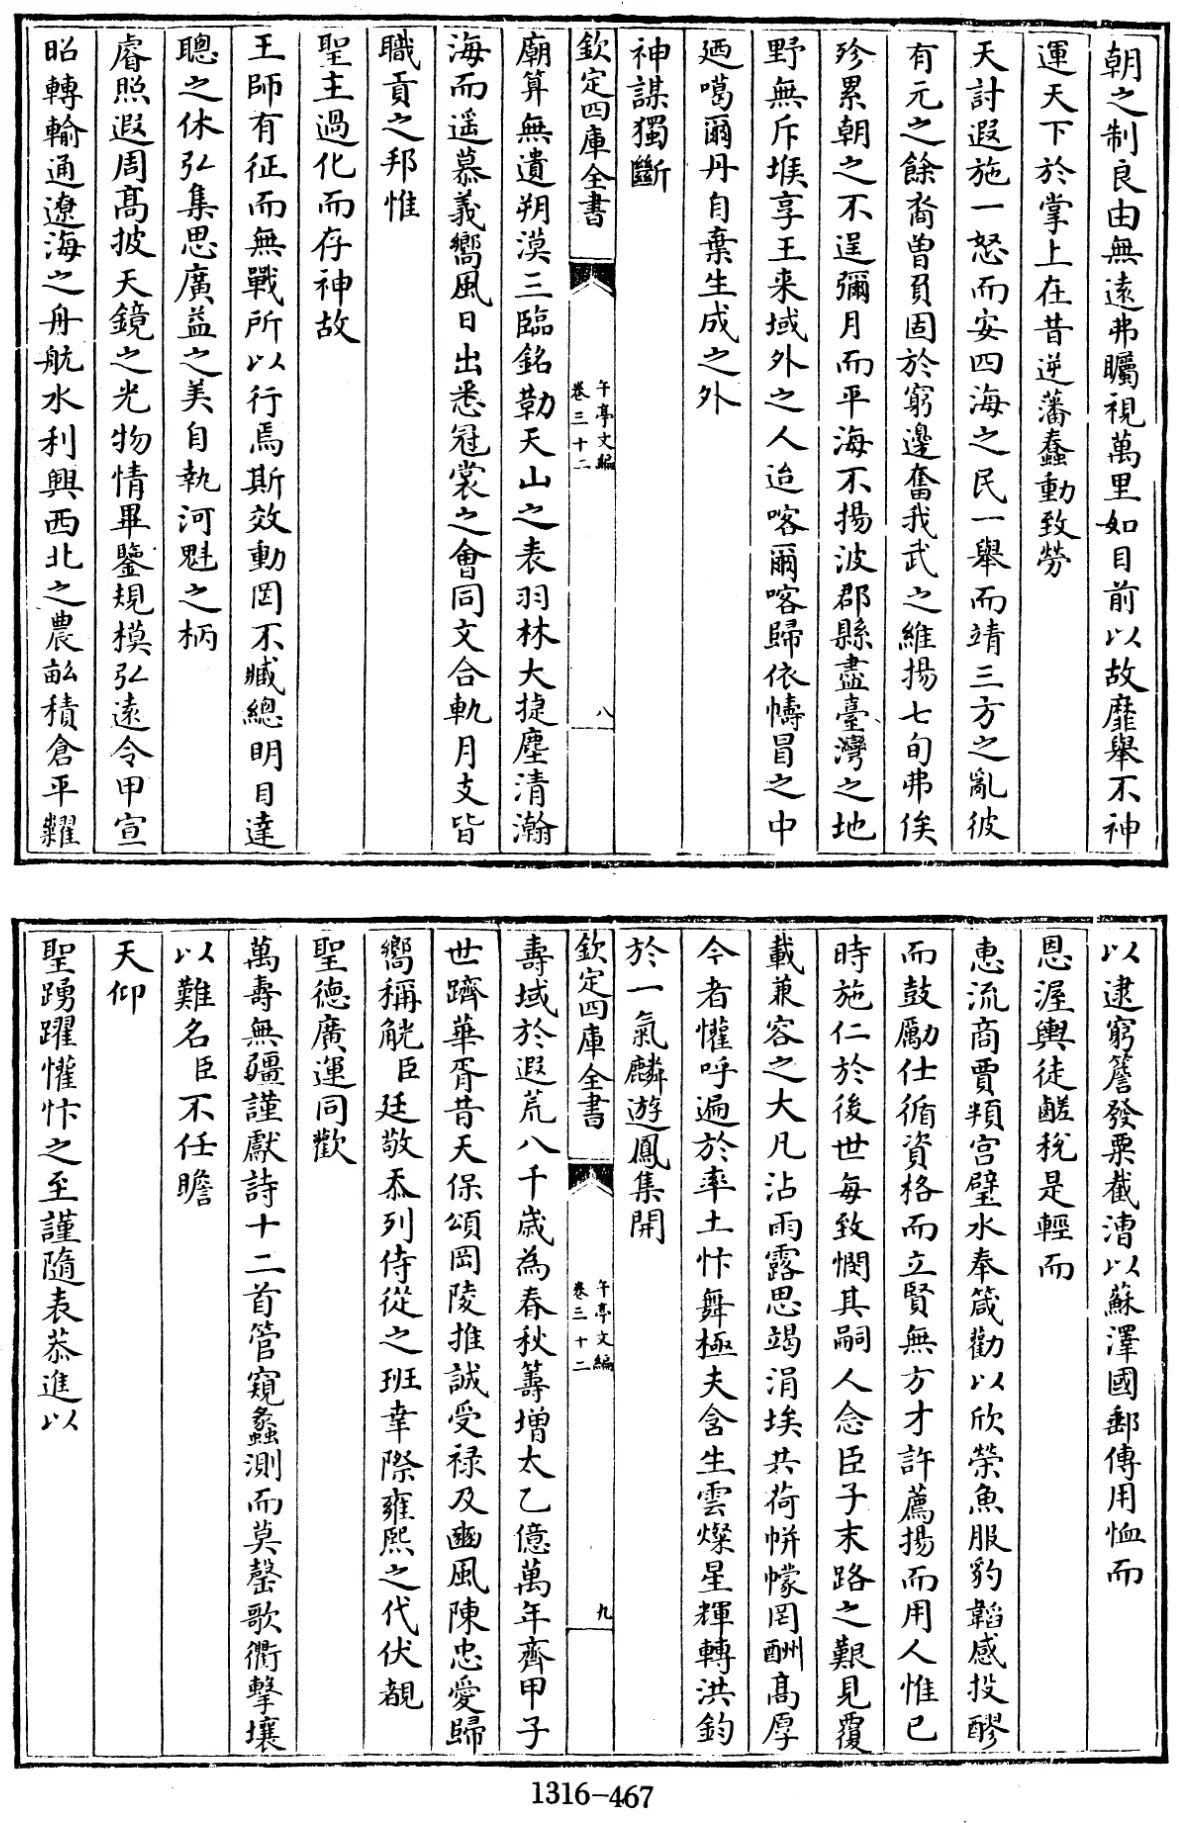 朝之制良由無遠弗矚視萬里如目前以故靡舉不神
運天下於掌上在昔逆藩蠢動致勞
天討遐施一怒而安四海之民一舉而靖三方之亂彼
有元之餘裔曽負固於窮邊奮我武之維揚七旬弗俟
殄累朝之不逞彌月而平海不揚波郡縣盡臺灣之地
野無斥堠享王来域外之人迨喀爾喀歸依幬冒之中
廼噶爾丹自棄生成之外
神謀獨斷
欽定四庫全書
午亭文編
卷三十二
八
廟算無遺朔漠三臨銘勒天山之表羽林大捷塵清瀚
海而遥慕義嚮風日出悉冠裳之會同文合軌月支皆
職貢之邦惟
聖主過化而存神故
王師有征而無戰所以行焉斯效動罔不臧總明目達
聰之休弘集思廣益之美自執河魁之柄
睿照遐周髙披天鏡之光物情畢鑒規模弘遠令甲宣
昭轉輸通遼海之舟航水利興西北之農畝積倉平糶
以逮窮簷發粟截漕以蘇澤國郵傳用恤而
恩渥輿徒鹺稅是輕而
惠流商賈頖宮璧水奉箴勸以欣榮魚服豹韜感投醪
而鼓勵仕循資格而立賢無方才許薦揚而用人惟已
時施仁於後世每致憫其嗣人念臣子末路之艱見覆
載兼容之大凡沾雨露思竭涓埃共荷帡幪罔酬髙厚
今者懽呼遍於率土忭舞極夫含生雲燦星輝轉洪鈞
於一氣麟遊鳳集開
欽定四庫全書
午亭文編
卷三十二
九
壽域於遐荒八千歳為春秋籌增太乙億萬年齊甲子
世躋華胥昔天保頌岡陵推誠受禄及豳風陳忠愛歸
嚮稱觥臣廷敬忝列侍從之班幸際雍熙之代伏覩
聖德廣運同歡
萬壽無疆謹獻詩十二首管窺蠡測而莫罄歌衢擊壤
以難名臣不任瞻
天仰
聖踴躍懽忭之至謹隨表恭進以
1316-467